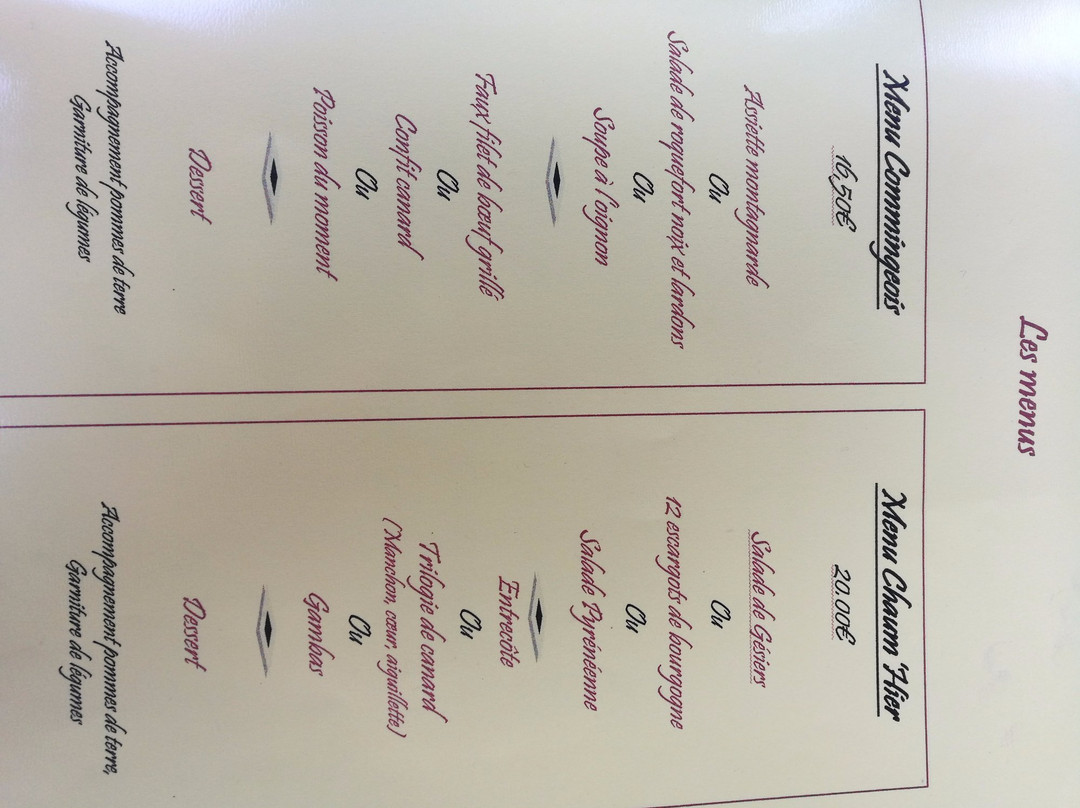 Les menus
Menu Commingeois
16,50€
Assiette montagnarde
Ou
Salade de roquefort noix et lardons
Ou
Soupe à l'oignon
Faux filet de bœuf grillé
Ou
Confit canard
Ou
Poisson du moment
Dessert
Accompagnement pommes de terre
Garniture de légumes
Menu Chaum'Hier
20.00€
Salade de Gésiers
Ou
12 escargots de bourgogne
Ou
Salade Pyrénéenne
Entrecôte
Ou
Trilogie de canard
(Manchon, cœur, aiguillette)
Ou
Gambas
Dessert
Accompagnement pommes de terre,
Garniture de légumes